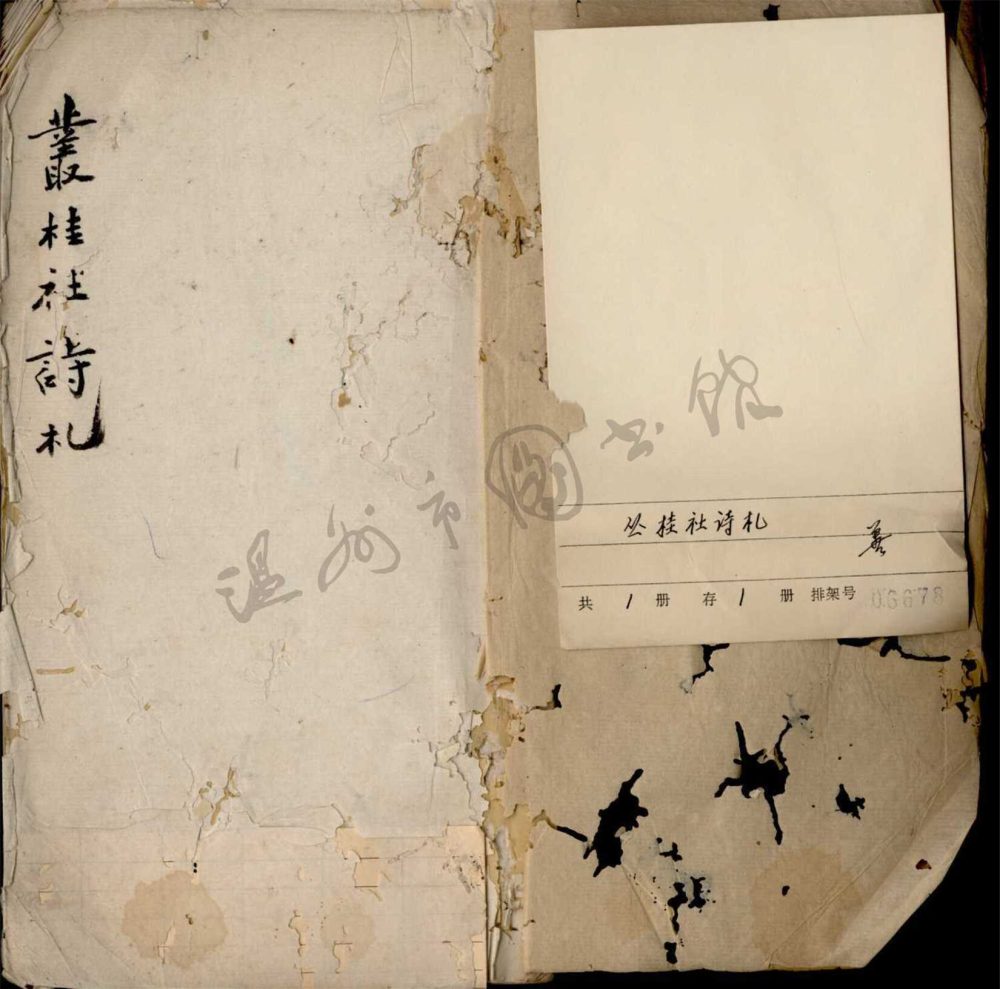 叢桂社詩札
温州市圖书館
丛桂社诗札
共 1 册 存 1 册 排架号 06678